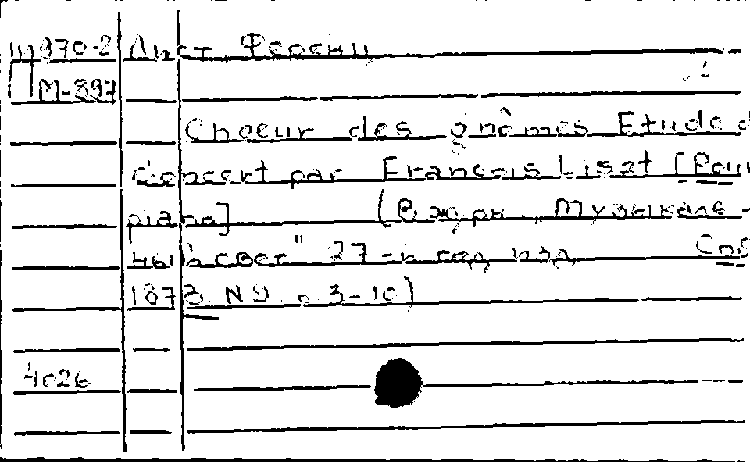 Ш 870-2 Лист Ференц
П M-897
Choeur des gnômes Etude d
concert par François Liszt [Pour
piano] (В журн. „Музыкаль-
ный свет" 27-й год изд. Спб
1873 N9 с 3-10)
4026